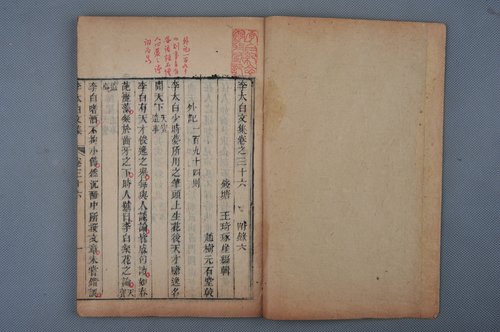 李太白文集卷之三十六 附錄六
錢塘 王琦琢崖編輯
趙樹元石堂較
外記一百九十四則
李太白少時夢所用之筆頭上生花後天才贍逸名
聞天下 天寶遺事
李白有天才俊逸之譽每與人談論皆成句讀如春
葩麗藻粲於齒牙之下時人號曰李白粲花之論 天寶遺事
李白嗜酒不拘小節然沉酣中所撰文章未嘗錯誤
李太白文集 卷三十六 一